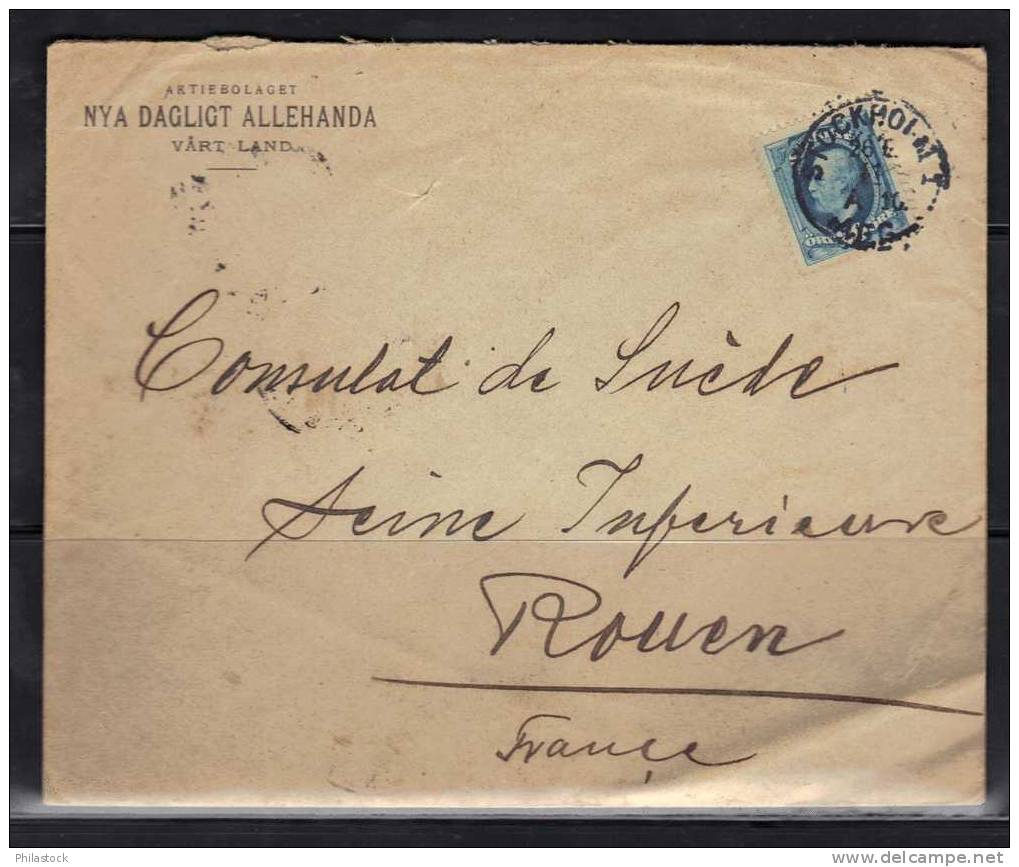 AKTIEBOLAGET
NYA DAGLIGT ALLEHANDA
VÅRT LAND.
STOCKHOLM 1
ÖRE
Consulat de Suède
Seine Inferieure
Rouen
France
Philastock
http://www.delcampe.net